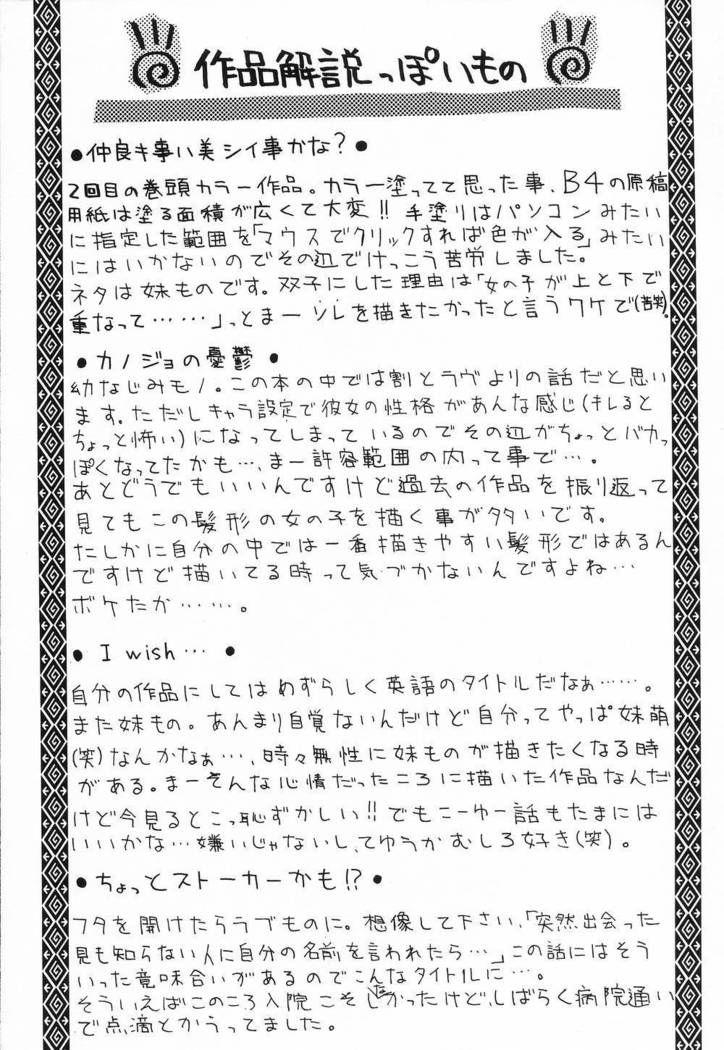 作品解説っぽいもの
●仲良キ事い美シイ事かな?●
2回目の巻頭カラー作品。カラー塗ってて思った事、B4の原稿
用紙は塗る面積が広くて大変!! 手塗りはパソコンみたい
に指定した範囲を「マウスでクリックすれば色が入る」みたい
にはいかないのでその辺でけっこう苦労しました。
ネタは妹ものです。双子にした理由は「女の子が上と下で
重なって……」っとまーソレを描きたかったと言うワケで(苦笑)。
●カノジョの憂鬱●
幼なじみモノ。この本の中では割とラヴよりの話だと思い
ます。ただしキャラ設定で彼女の性格があんな感じ(キレると
ちょっと怖い)になってしまっているのでその辺がちょっとバカっ
ぽくなってたかも…、まー許容範囲の内って事で…。
あとどうでもいいんですけど過去の作品を振り返って
見てもこの髪形の女の子を描く事が多いです。
たしかに自分の中では一番描きやすい髪形ではあるん
ですけど描いてる時って気づかないんですよね…
ボケたか……。
● I wish… ●
自分の作品にしてはめずらしく英語のタイトルだなぁ……。
また妹もの。あんまり自覚ないんだけど自分ってやっぱ妹萌
(笑)なんかなぁ…、時々無性に妹ものが描きたくなる時
がある。まーそんな心情だったころに描いた作品なんだ
けど今見るとこっ恥ずかしい!!でもこーゆー話もたまには
いいかな…嫌いじゃないし、てゆうかむしろ好き(笑)。
●ちょっとストーカーかも!?●
フタを開けたらラブものに。想像して下さい、「突然出会った
見も知らない人に自分の名前を言われたら…」この話にはそう
いった意味合いがあるのでこんなタイトルに…。
そういえばこのころ入院こそしなかったけど、しばらく病院通い
で点滴とかうってました。